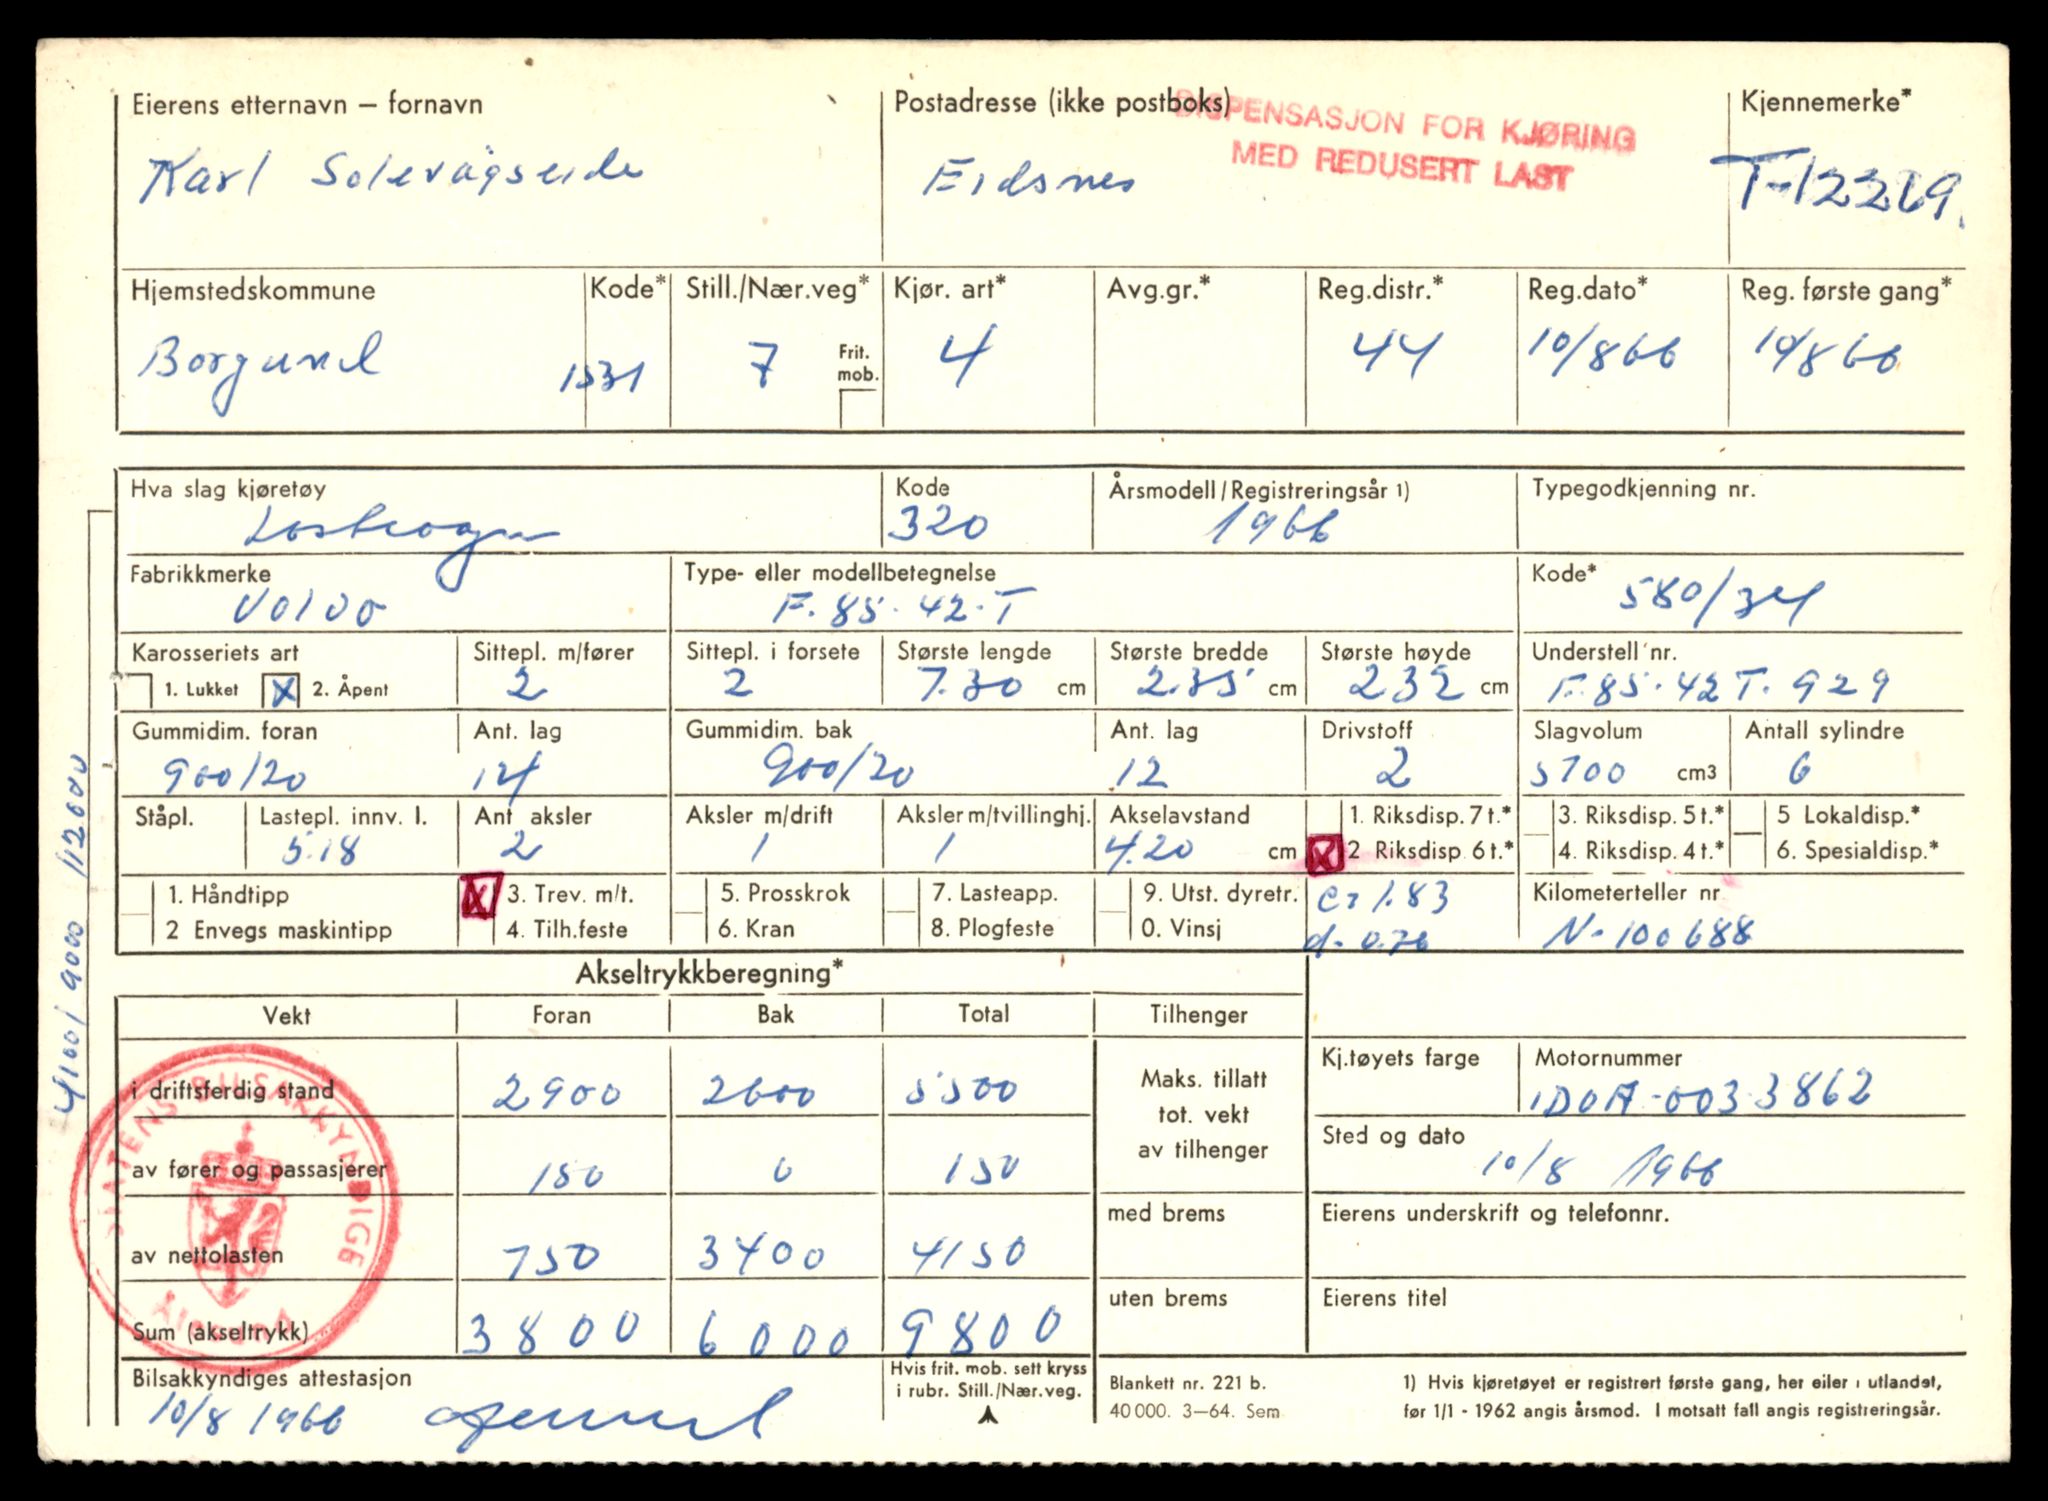 Eierens etternavn – fornavn
Karl Solevågseide
Postadresse (ikke postboks)
Eidsnes
DISPENSASJON FOR KJØRING
MED REDUSERT LAST
Kjennemerke*
T-12219.
Hjemstedskommune
Borgund
Kode*
1531
Still./Nær.veg*
7
Frit.
mob.
Kjør. art*
4
Avg.gr.*
Reg.distr.*
44
Reg.dato*
10/8 66
Reg. første gang*
10/8 66
Hva slag kjøretøy
Lastevogn
Kode
320
Årsmodell/Registreringsår 1)
1966
Typegodkjenning nr.
Fabrikkmerke
Volvo
Type- eller modellbetegnelse
F.85.42.T
Kode*
580/34
Karosseriets art
1. Lukket X 2. Åpent
Sittepl. m/fører
2
Sittepl. i forsete
2
Største lengde
7.30 cm
Største bredde
2.35 cm
Største høyde
232 cm
Understell nr.
F.85.42T.929
Gummidim. foran
900/20
Ant. lag
14
Gummidim. bak
900/20
Ant. lag
12
Drivstoff
2
Slagvolum
5100 cm3
Antall sylindre
6
Ståpl.
Lastepl. innv. l.
5.18
Ant aksler
2
Aksler m/drift
1
Aksler m/tvillinghj.
1
Akselavstand
4.20 cm
1. Riksdisp. 7 t.*
X 2 Riksdisp. 6 t.*
3. Riksdisp. 5 t.*
4. Riksdisp. 4 t.*
5 Lokaldisp.*
6. Spesialdisp.*
1. Håndtipp
2 Envegs maskintipp
X 3. Trev. m/t.
4. Tilh.feste
5. Prosskrok
6. Kran
7. Lasteapp.
8. Plogfeste
9. Utst. dyretr.
0. Vinsj
c= 1.83
d- 0.76
Kilometerteller nr
N-100688
Akseltrykkberegning*
Vekt Foran Bak Total Tilhenger
i driftsferdig stand 2900 2600 5500
av fører og passasjerer 150 0 150
av nettolasten 750 3400 4150
Sum (akseltrykk) 3800 6000 9800
Maks. tillatt
tot. vekt
av tilhenger
med brems
uten brems
Kj.tøyets farge
Motornummer
DOA-003.3862
Sted og dato
10/8 1966
Eierens underskrift og telefonnr.
Eierens titel
Bilsakkyndiges attestasjon
10/8 1966
Hvis frit. mob. sett kryss
i rubr. Still./Nær.veg.
Blankett nr. 221 b.
40 000. 3–64. Sem
1) Hvis kjøretøyet er registrert første gang, her eller i utlandet,
før 1/1 - 1962 angis årsmod. I motsatt fall angis registreringsår.
4100/ 9000 /12600
STATENS BILSAKKYNDIGE